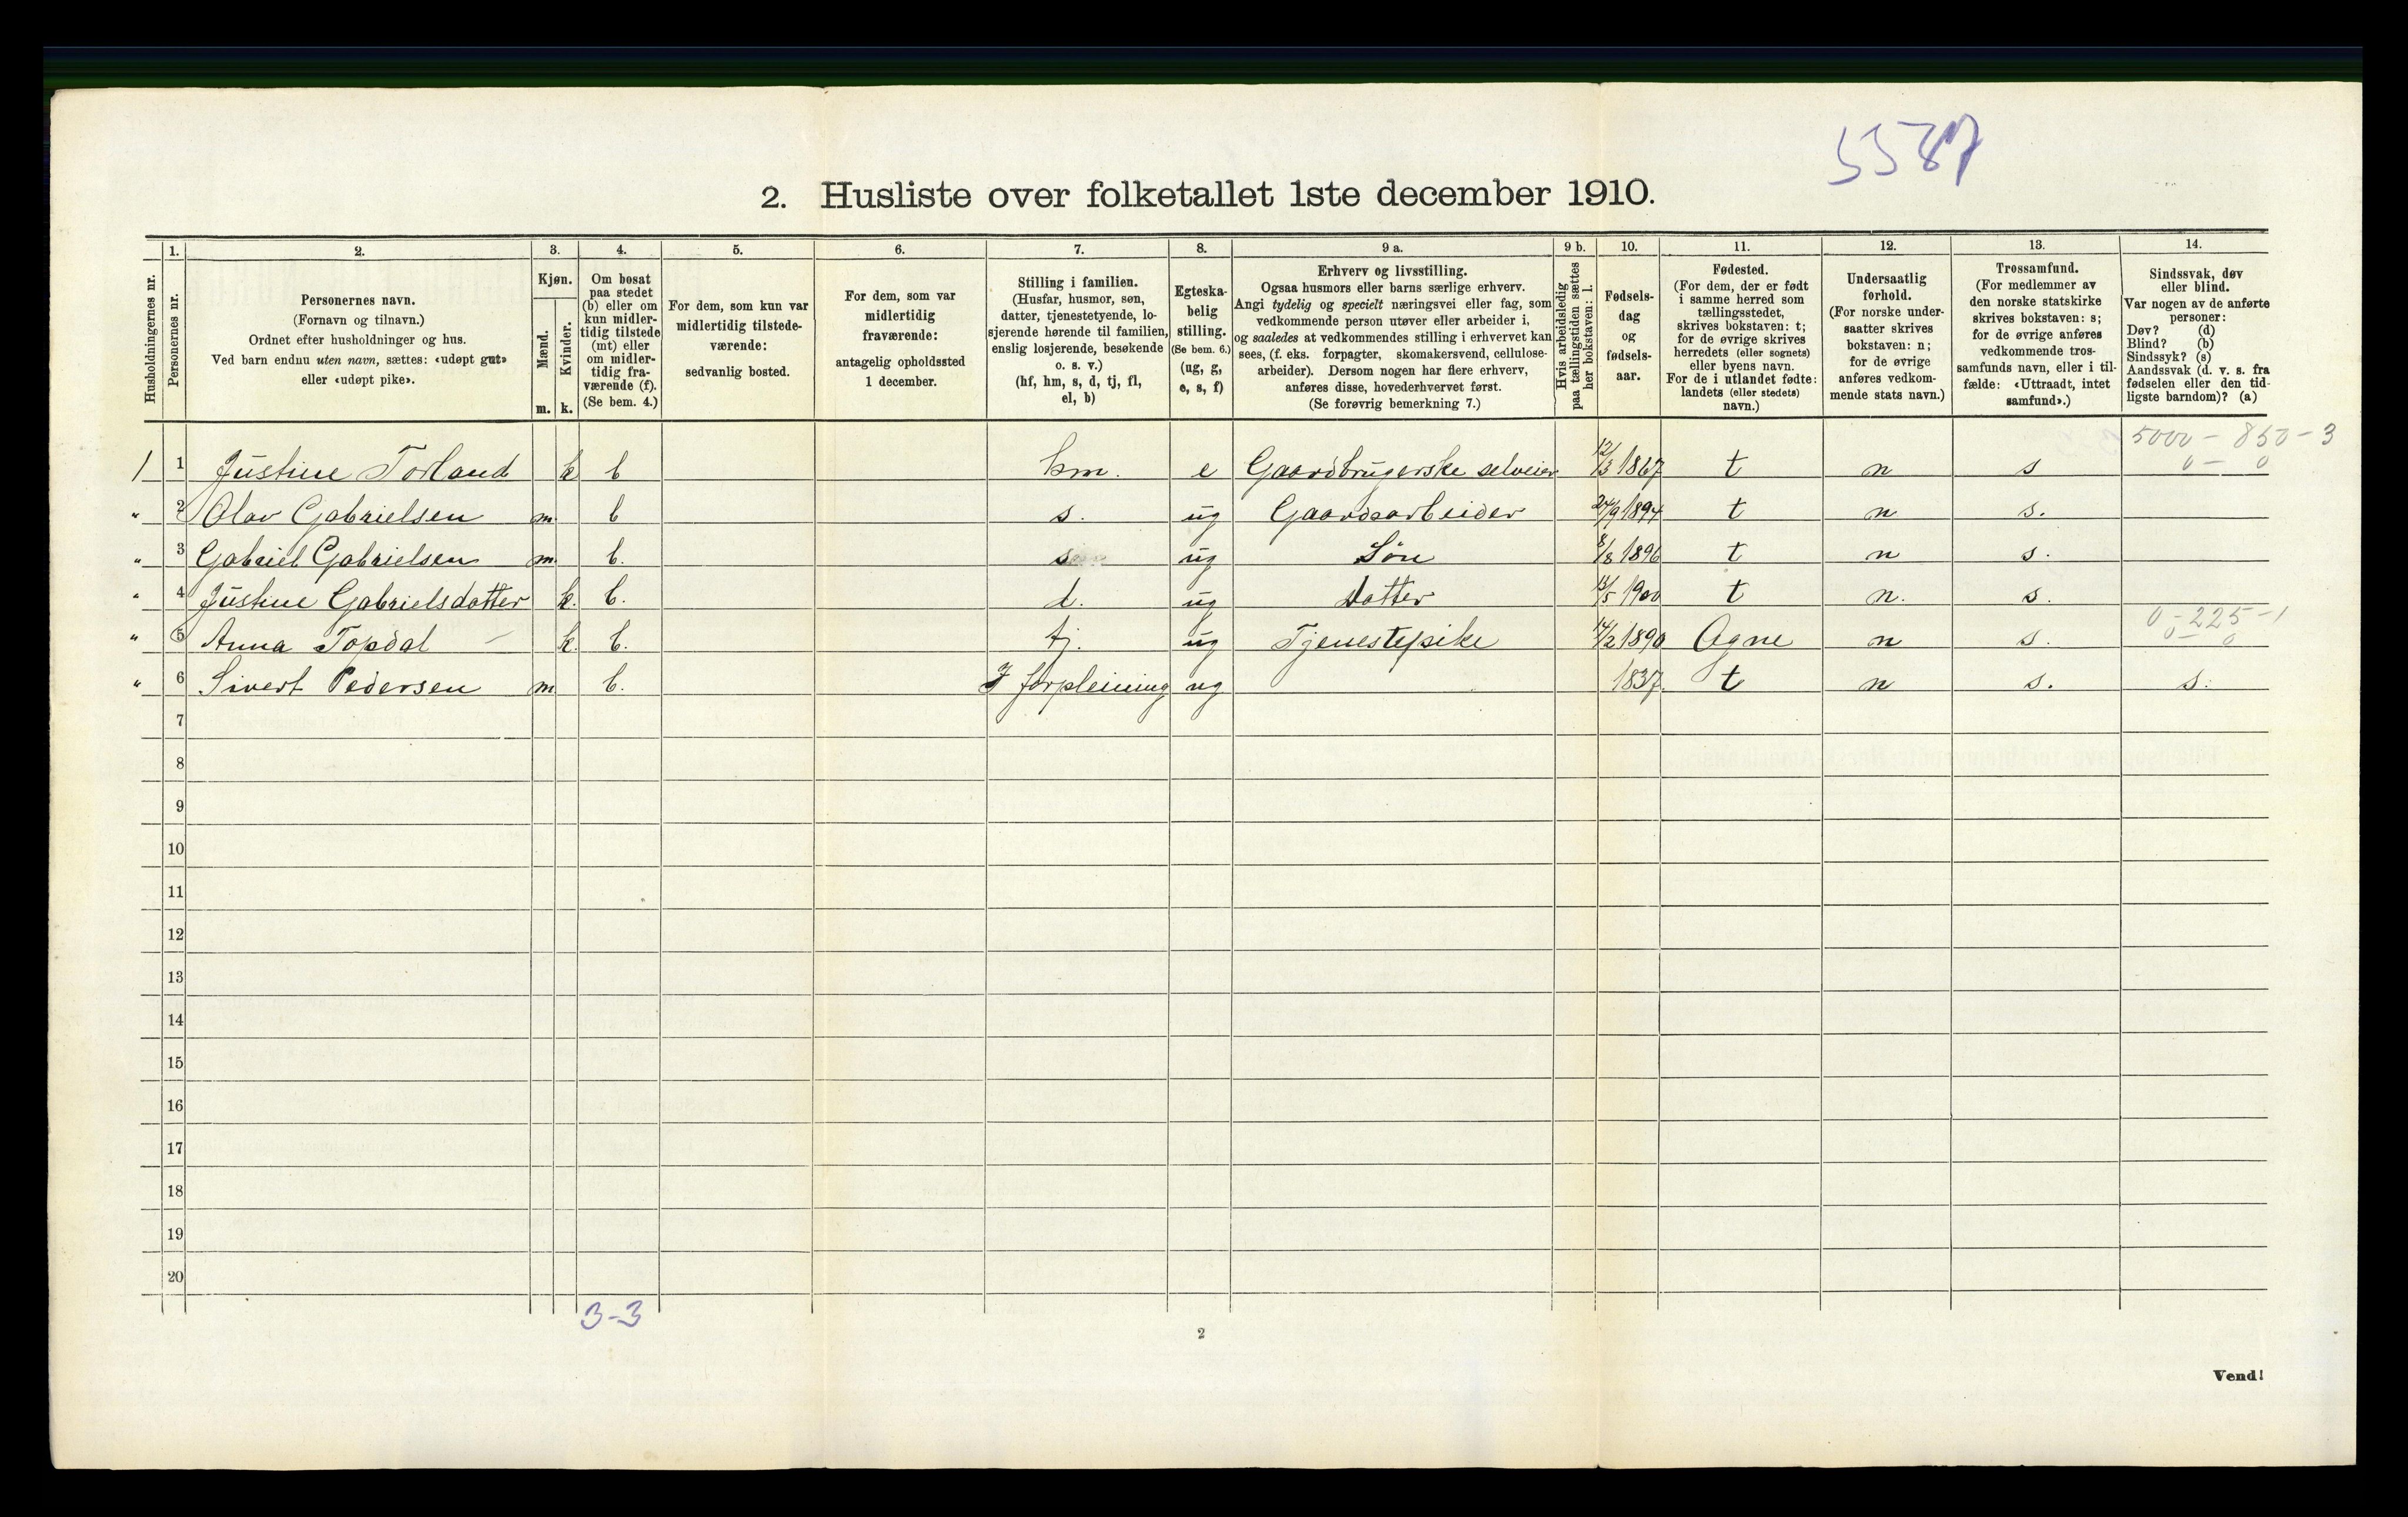 5587
2. Husliste over folketallet 1ste december 1910.
Husholdningernes nr.
1. Personernes nr.
2. Personernes navn.
(Fornavn og tilnavn.)
Ordnet efter husholdninger og hus.
Ved barn endnu uten navn, sættes: «udøpt gut»
eller «udøpt pike».
3. Kjøn.
Mænd. m.
Kvinder. k.
4. Om bosat
paa stedet
(b) eller om
kun midler-
tidig tilstede
(mt) eller
om midler-
tidig fra-
værende (f).
(Se bem. 4.)
5. For dem, som kun var
midlertidig tilstede-
værende:
sedvanlig bosted.
6. For dem, som var
midlertidig
fraværende:
antagelig opholdssted
1 december.
7. Stilling i familien.
(Husfar, husmor, søn,
datter, tjenestetyende, lo-
sjerende hørende til familien,
enslig losjerende, besøkende
o. s. v.)
(hf, hm, s, d, tj, fl,
el, b)
8. Egteska-
belig
stilling.
(Se bem. 6.)
(ug, g,
e, s, f)
9 a. Erhverv og livsstilling.
Ogsaa husmors eller barns særlige erhverv.
Angi tydelig og specielt næringsvei eller fag, som
vedkommende person utøver eller arbeider i,
og saaledes at vedkommendes stilling i erhvervet kan
sees, (f. eks. forpagter, skomakersvend, cellulose-
arbeider). Dersom nogen har flere erhverv,
anføres disse, hovederhvervet først.
(Se forøvrig bemerkning 7.)
9 b. Hvis arbeidsledig
paa tællingstiden sættes
her bokstaven: l.
10. Fødsels-
dag
og
fødsels-
aar.
11. Fødested.
(For dem, der er født
i samme herred som
tællingsstedet,
skrives bokstaven: t;
for de øvrige skrives
herredets (eller sognets)
eller byens navn.
For de i utlandet fødte:
landets (eller stedets)
navn.)
12. Undersaatlig
forhold.
(For norske under-
saatter skrives
bokstaven: n;
for de øvrige
anføres vedkom-
mende stats navn.)
13. Trossamfund.
(For medlemmer av
den norske statskirke
skrives bokstaven: s;
for de øvrige anføres
vedkommende tros-
samfunds navn, eller i til-
fælde: «Uttraadt, intet
samfund».)
14. Sindssvak, døv
eller blind.
Var nogen av de anførte
personer:
Døv? (d)
Blind? (b)
Sindssyk? (s)
Aandssvak (d. v. s. fra
fødselen eller den tid-
ligste barndom)? (a)
5000 - 850 - 3
1 1 Justine Torland k b hm. e Gaardbrugerske selveier 12/3 1867 t n s 0 - 0
" 2 Olav Gabrielsen m. b s. ug Gaardsarbeider 24/9 1894 t n s.
" 3 Gabriel Gabrielsen m. b. s ug Søn 8/8 1896 t n s.
" 4 Justine Gabrielsdatter k. b. d. ug Datter 13/5 1900 t n. s.
0 - 225 - 1
" 5 Anna Topdal - k. b. tj. ug Tjenestepike 14/2 1890 Ogne n s. 0 - 0
" 6 Sivert Pedersen m b. I forpleining ug 1837. t n s. s.
7
8
9
10
11
12
13
14
15
16
17
18
19
20
3-3
2
Vend!